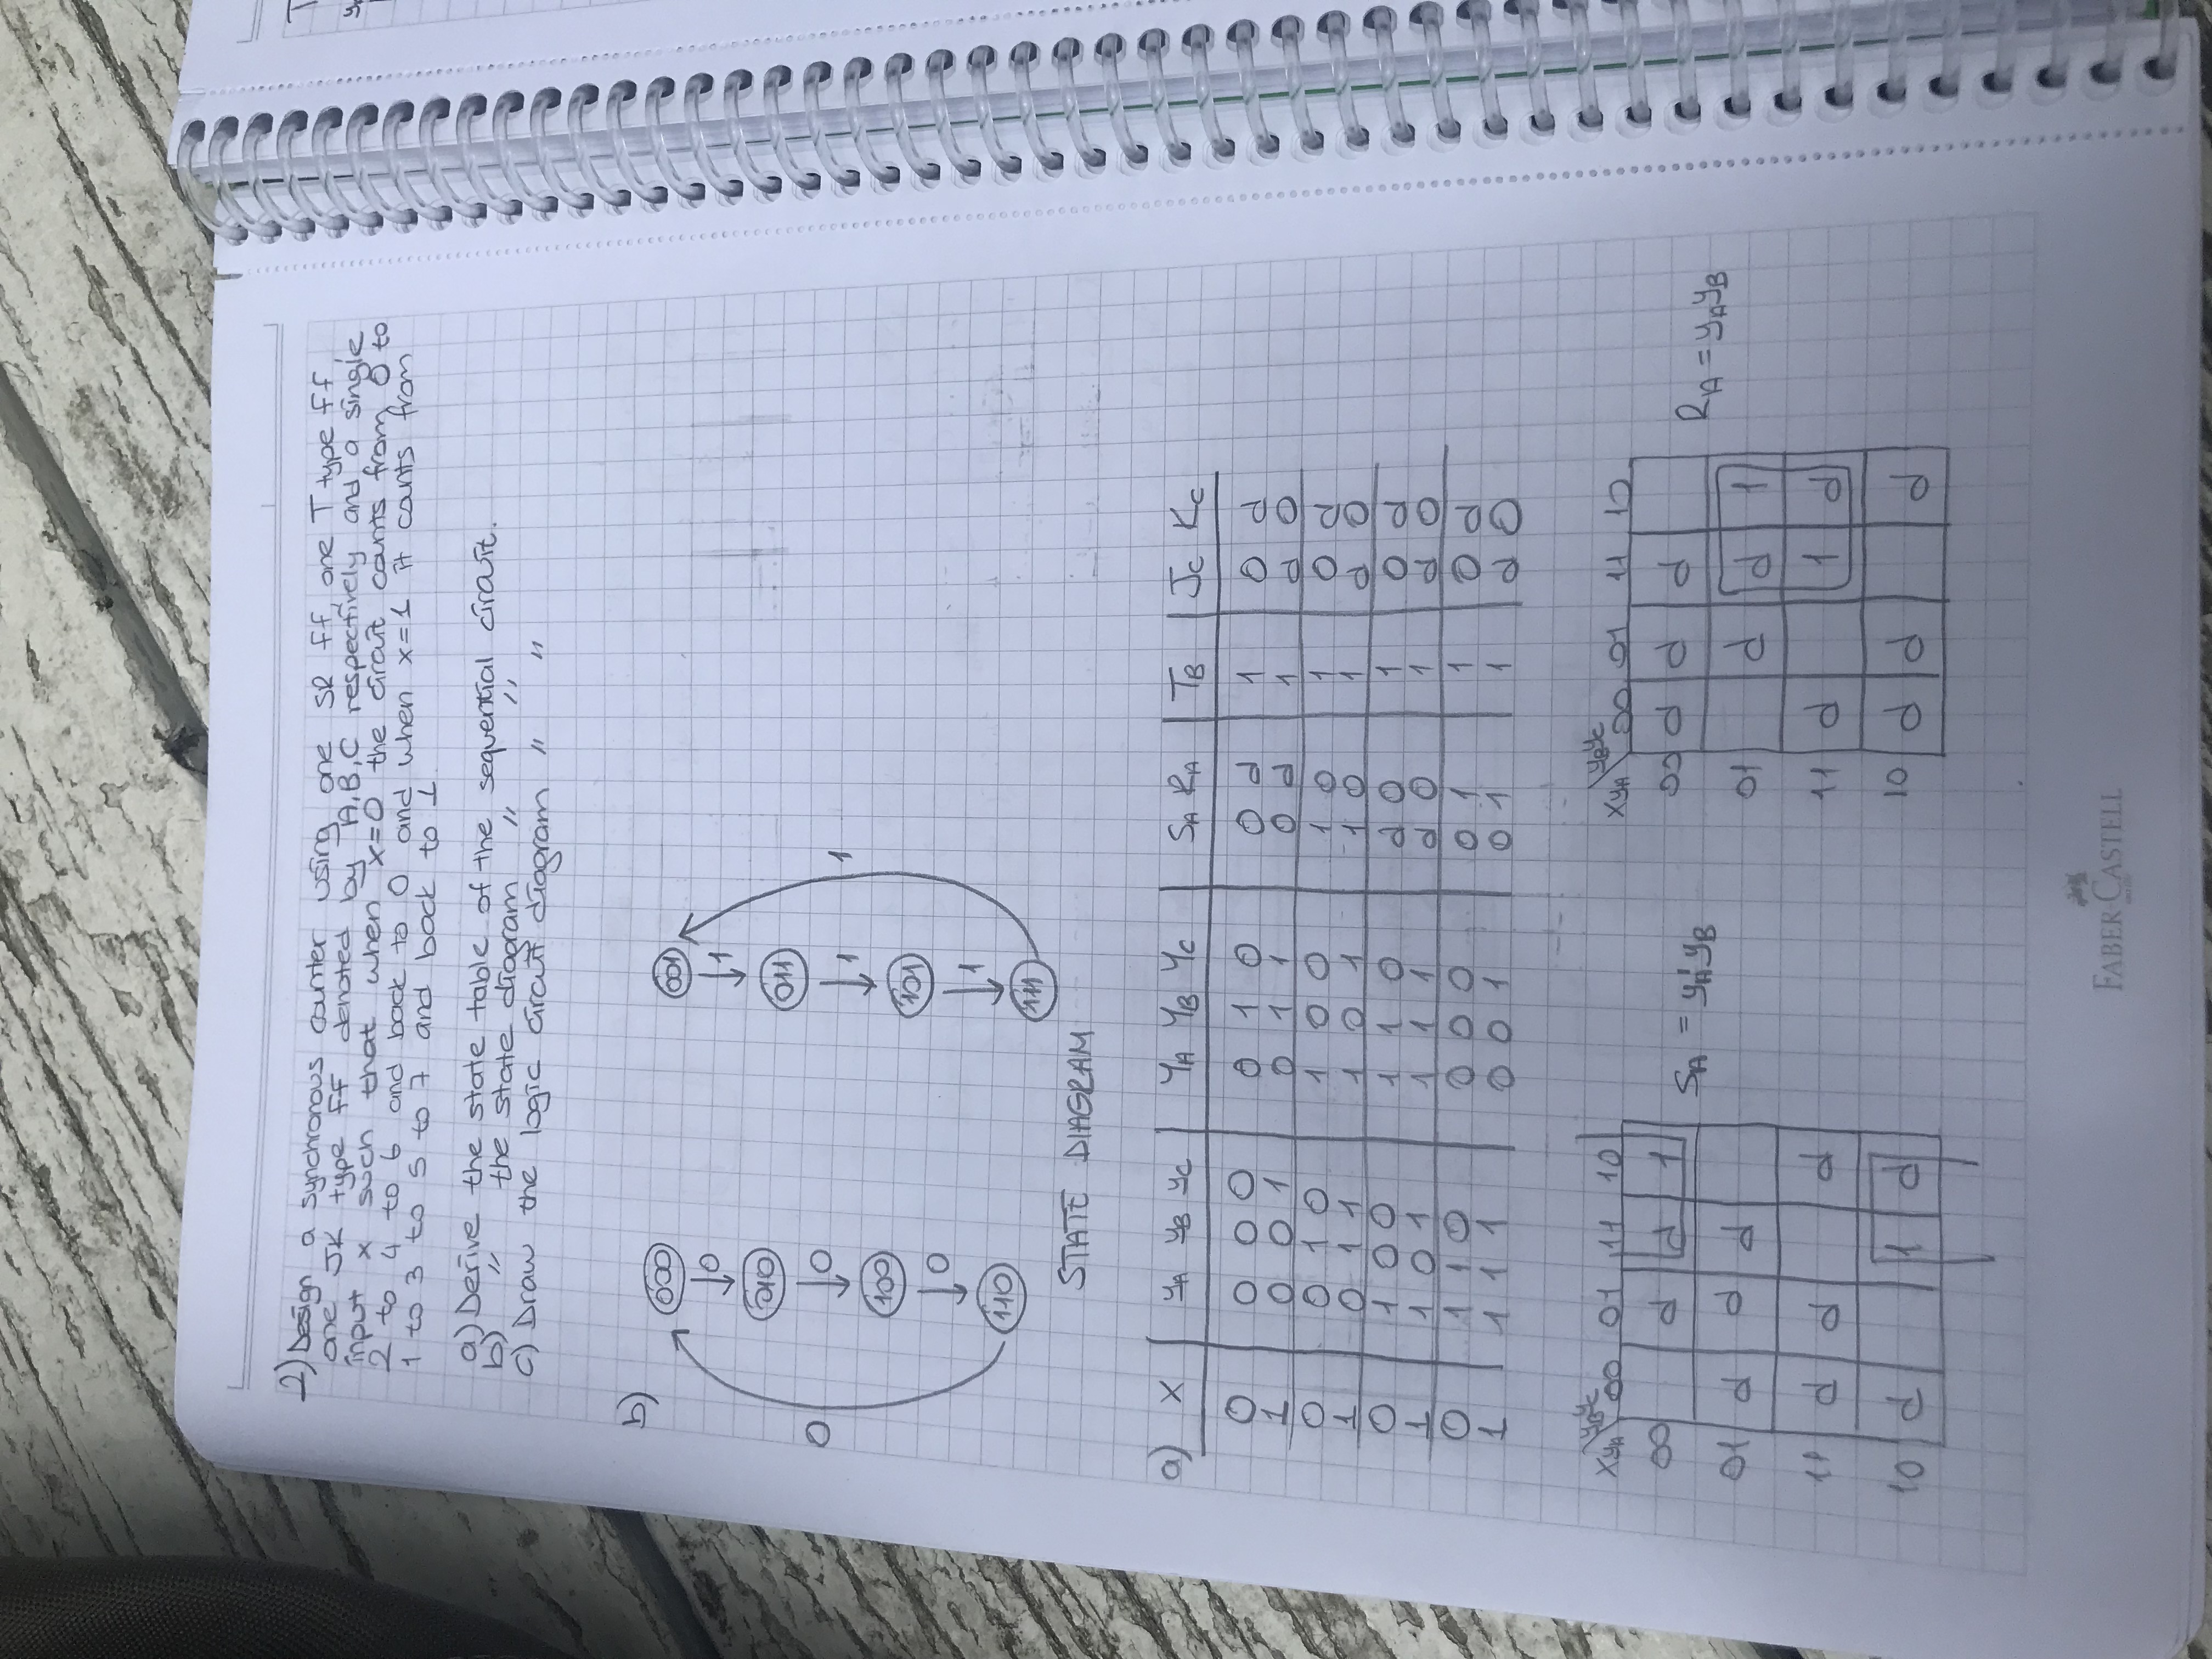 2) Design a synchronous counter using one SR ff, one T type ff,
one JK type ff denoted by A,B,C respectively and a single
input x such that when x=0 the circuit counts from 0 to
2 to 4 to 6 and back to 0 and when x=1 it counts from
1 to 3 to 5 to 7 and back to 1.
a) Derive the state table of the sequential circuit.
b) " the state diagram " "
c) Draw the logic circuit diagram " "
b)
000 001
0 1
010 011
0 0 1 1
100 101
0 1
110 111
STATE DIAGRAM
a) X yA yB yC YA YB YC SA RA TB JC KC
0 0 0 0 0 1 0 0 d 1 0 d
1 0 0 1 0 1 1 0 d 1 d 0
0 0 1 0 1 0 0 1 0 1 0 d
1 0 1 1 1 0 1 1 0 1 d 0
0 1 0 0 1 1 0 d 0 1 0 d
1 1 0 1 1 1 1 d 0 1 d 0
0 1 1 0 0 0 0 0 1 1 0 d
1 1 1 1 0 0 1 0 1 1 d 0
XyA yByC 00 01 11 10
00 d d 1
01 d d d
11 d d d
10 d 1 d
SA = yA'yB
XyA yByC 00 01 11 10
00 d d d
01 d d 1
11 d 1 d
10 d d d
RA = yAyB
FABER-CASTELL